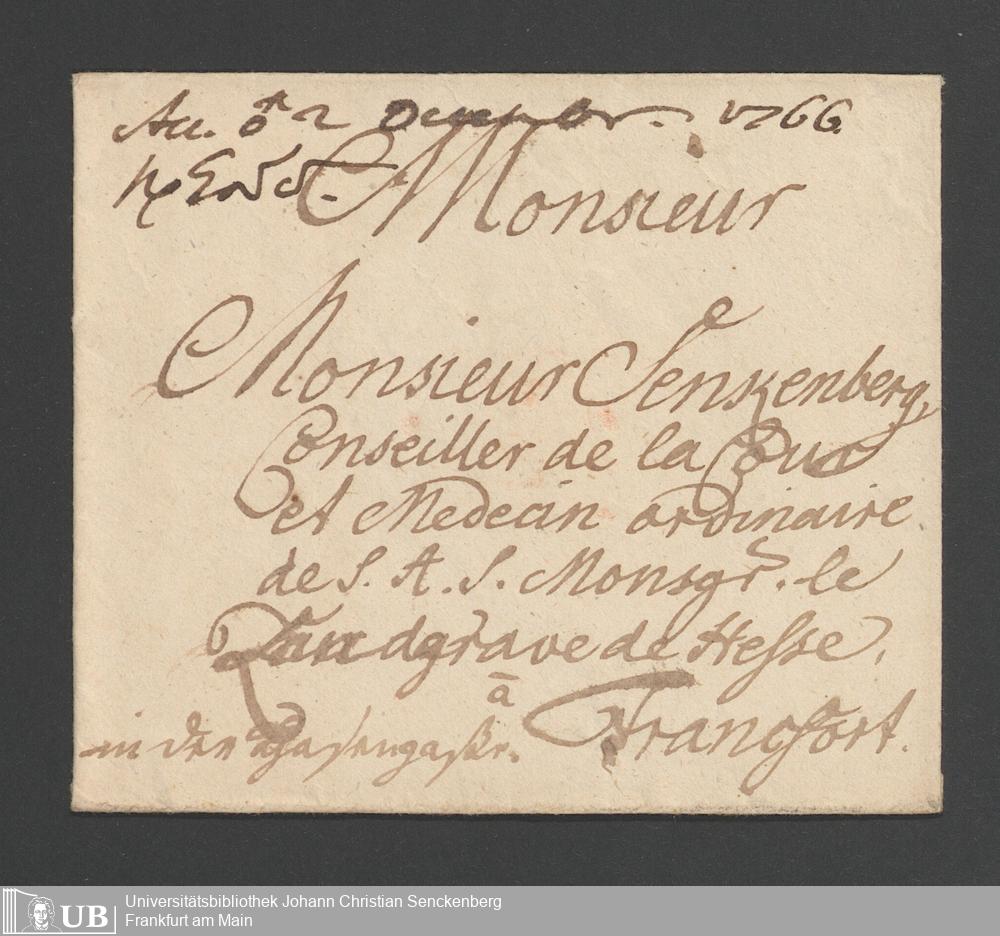 Acc. ♂ 2 December. 1766.
Monsieur
Monsieur Senkenberg,
Conseiller de la Cour
et Medecin ordinaire
de S. A. S. Monsgr. le
Landgrave de Hesse,
à
Francfort.
in der Hasengasse.
UB
Universitätsbibliothek Johann Christian Senckenberg
Frankfurt am Main